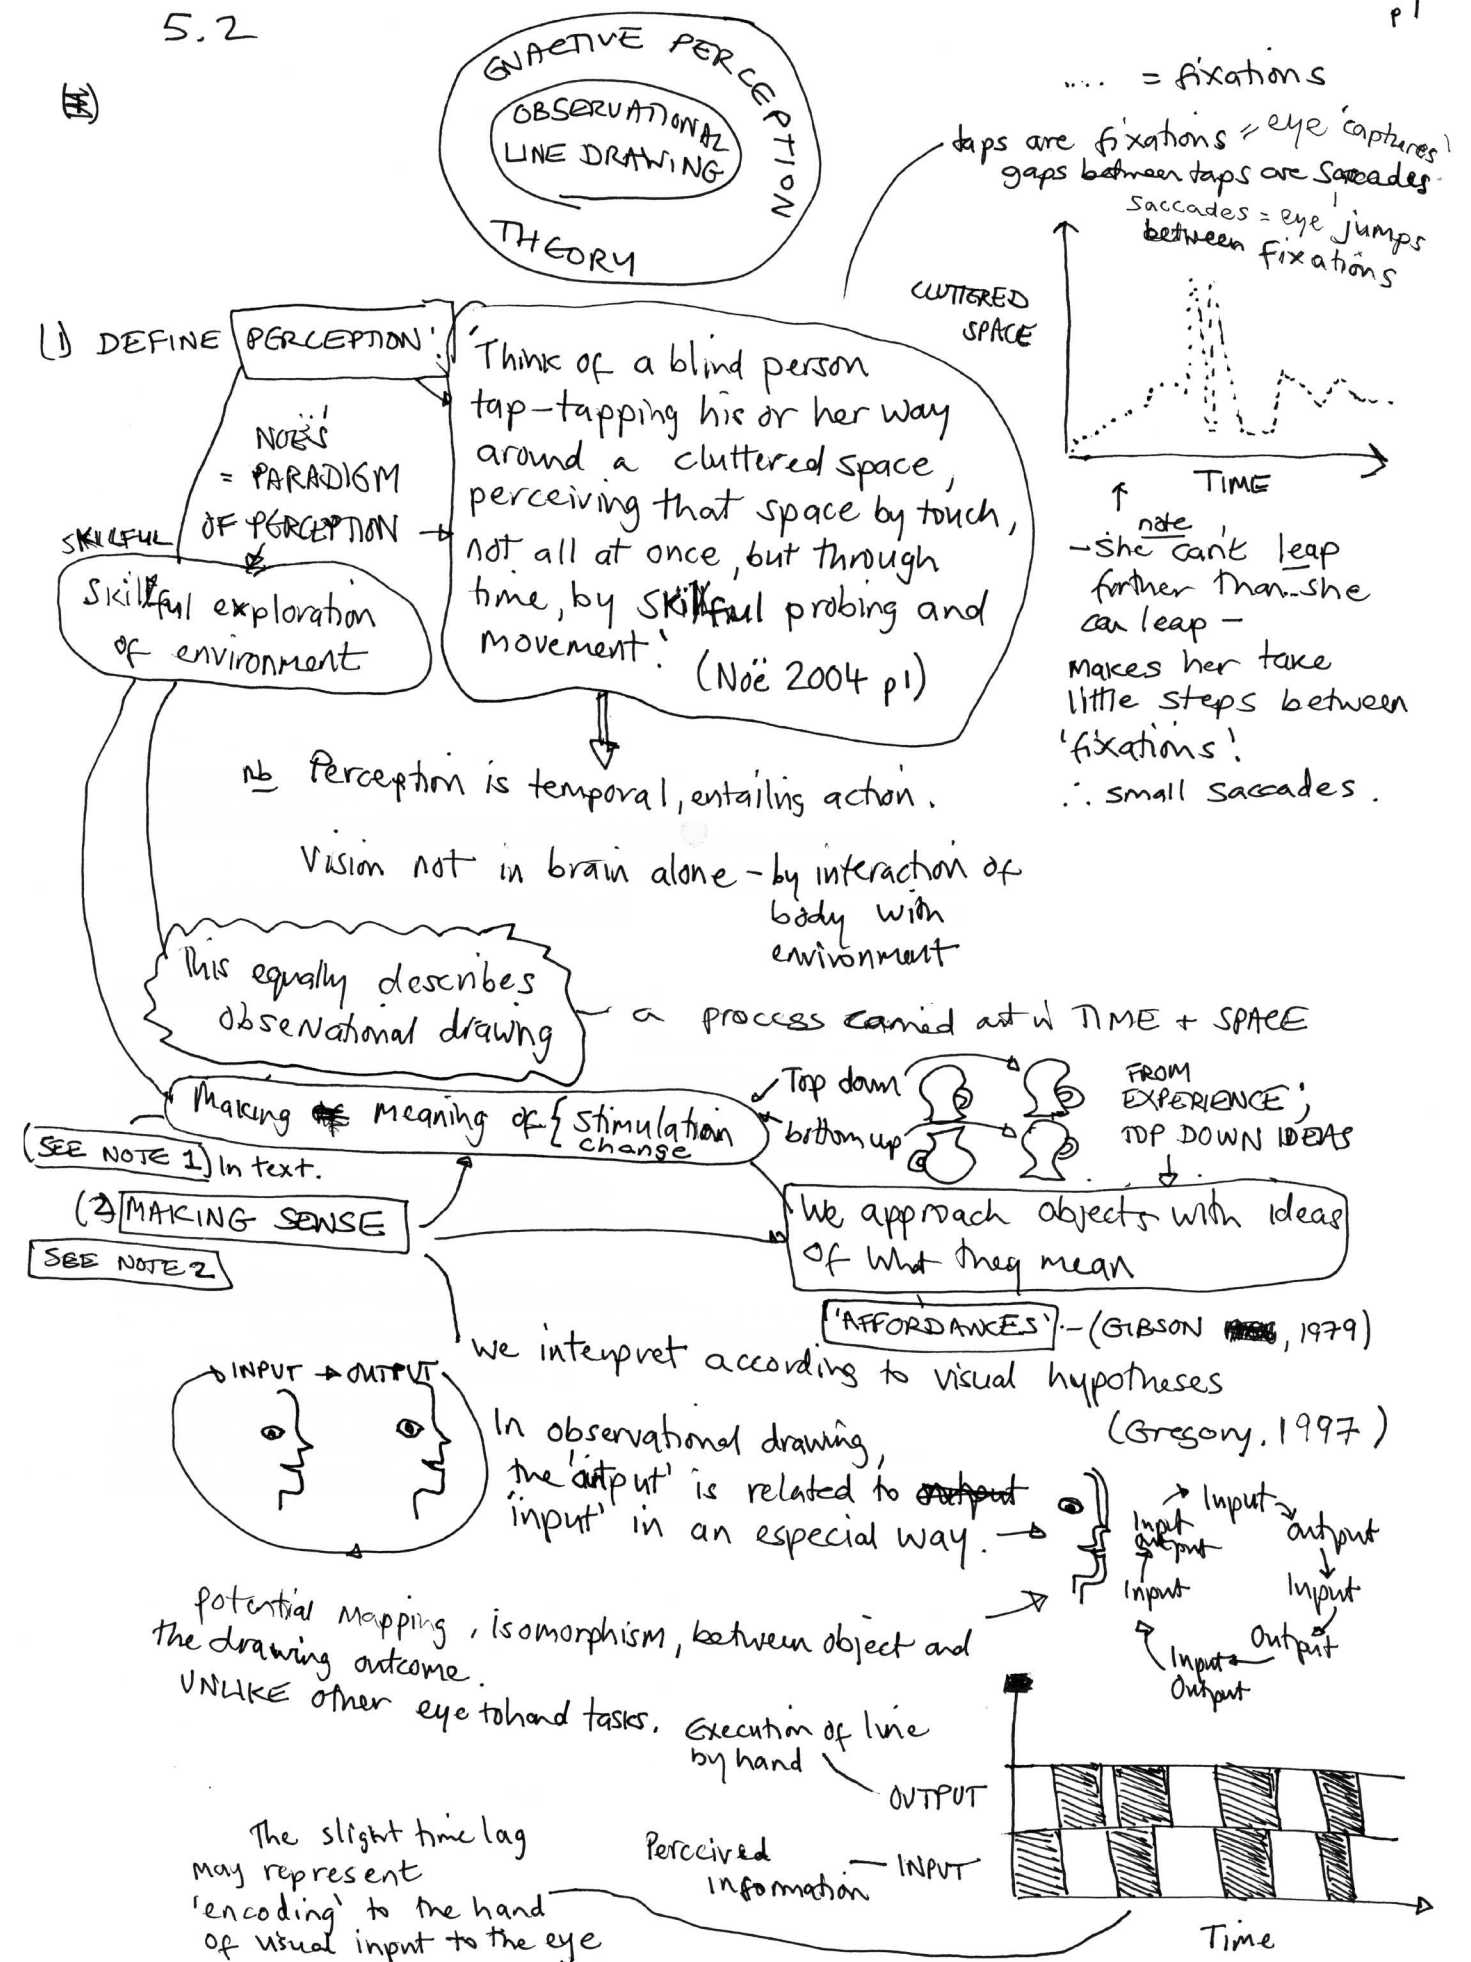 5.2
p1
ENACTIVE PERCEPTION
THEORY
OBSERVATIONAL
LINE DRAWING
.... = fixations
taps are fixations = eye 'captures'
gaps between taps are saccades
saccades = eye 'jumps
between fixations
CLUTTERED
SPACE
TIME
(1) DEFINE 'PERCEPTION'.
NOË'S
= PARADIGM
OF PERCEPTION
SKILFUL
Skillful exploration
of environment
'Think of a blind person
tap-tapping his or her way
around a cluttered space,
perceiving that space by touch,
not all at once, but through
time, by skillful probing and
movement.'
(Noë 2004 p1)
note
- she can't leap
further than..she
can leap -
makes her take
little steps between
'fixations'.
∴ small saccades.
nb Perception is temporal, entailing action.
Vision not in brain alone - by interaction of
body with
environment
This equally describes
observational drawing
- a process carried out in TIME + SPACE
Making meaning of { stimulation
change
Top down
bottom up
FROM
EXPERIENCE;
TOP DOWN IDEAS
(SEE NOTE 1) In text.
(2) MAKING SENSE
SEE NOTE 2
We approach objects with ideas
of what they mean
'AFFORDANCES' - (GIBSON , 1979)
We interpret according to visual hypotheses
(Gregory, 1997)
INPUT → OUTPUT
In observational drawing,
the 'output' is related to output
'input' in an especial way. →
Input
output
Input
Output
Input
Output
Input
Input
output
Potential mapping, isomorphism, between object and
the drawing outcome.
UNLIKE other eye to hand tasks.
Execution of line
by hand
OUTPUT
Perceived
information
- INPUT
Time
The slight time lag
may represent
'encoding' to the hand
of visual input to the eye